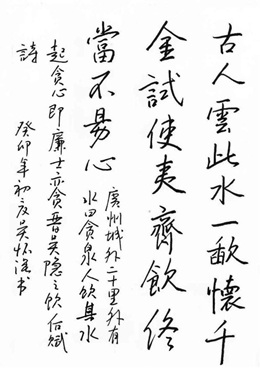 古人雲此水一歃懷千
金試使夷齊飲終
當不易心
廣州城外二十里外有
水曰貪泉人飲其水
起貪心即廉士亦貪晉吳隱之飲後賦
詩
癸卯年初夏吳懷清书